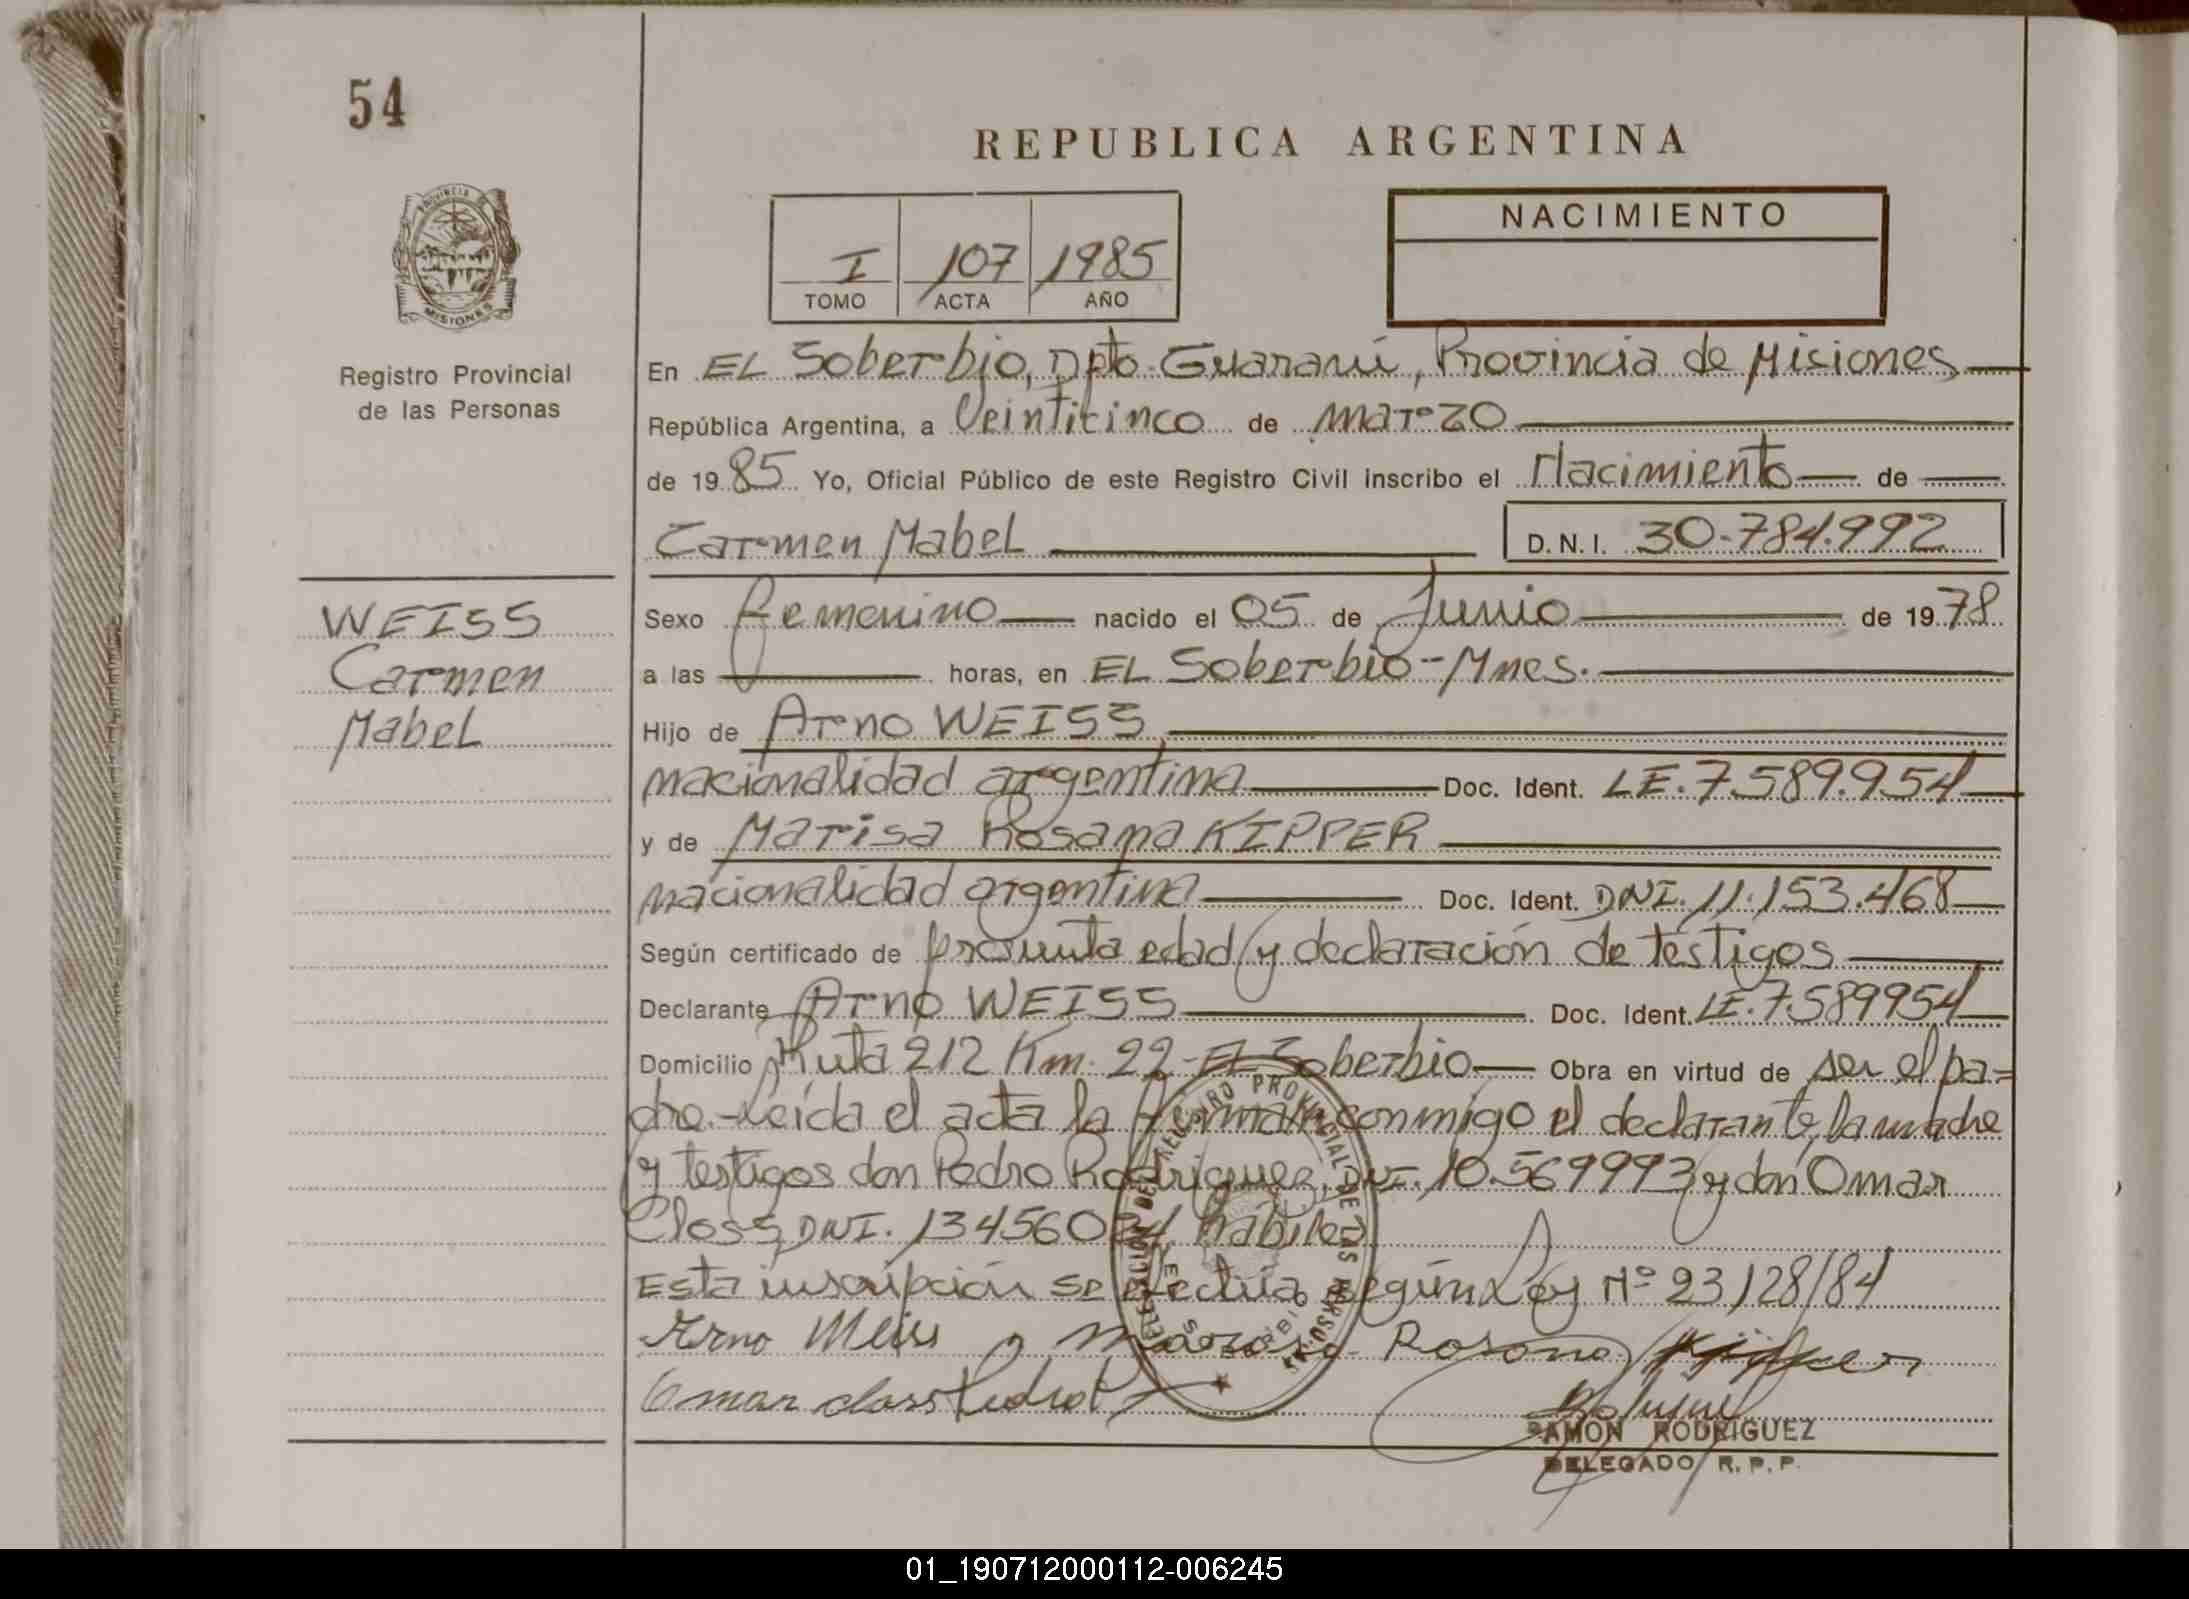 54
REPUBLICA ARGENTINA
PROVINCIA DE
MISIONES
I 107 1985
TOMO ACTA AÑO
NACIMIENTO
Registro Provincial
de las Personas
En EL Soberbio, Dpto. Guaraní, Provincia de Misiones
República Argentina, a Veinticinco de Marzo
de 1985 Yo, Oficial Público de este Registro Civil inscribo el Nacimiento de
Carmen Mabel D.N.I. 30.784.992
WEISS
Carmen
Mabel
Sexo femenino nacido el 05 de Junio de 1978
a las horas, en EL Soberbio-Mnes.
Hijo de Arno WEISS
nacionalidad argentina Doc. Ident. LE.7.589.954
y de Marisa Rosana KIPPER
nacionalidad argentina Doc. Ident. DNI.11.153.468
Según certificado de presunta edad y declaración de testigos
Declarante Arno WEISS Doc. Ident. LE.7.589954
Domicilio Ruta 212 Km. 22-EL Soberbio Obra en virtud de ser el pa=
dre.-Leída el acta la firman conmigo el declarante, la madre
y testigos don Pedro Rodriguez, DNI.10.569993 y don Omar
Closs, DNI. hábiles
Esta inscripción se efectúa según Ley Nº 23128/84
Arno Weiss Rosana Kipper
Omar closs Pedro
RAMON RODRIGUEZ
DELEGADO R.P.P.
DELEGACION DEL REGISTRO PROVINCIAL DE LAS PERSONAS
01_190712000112-006245